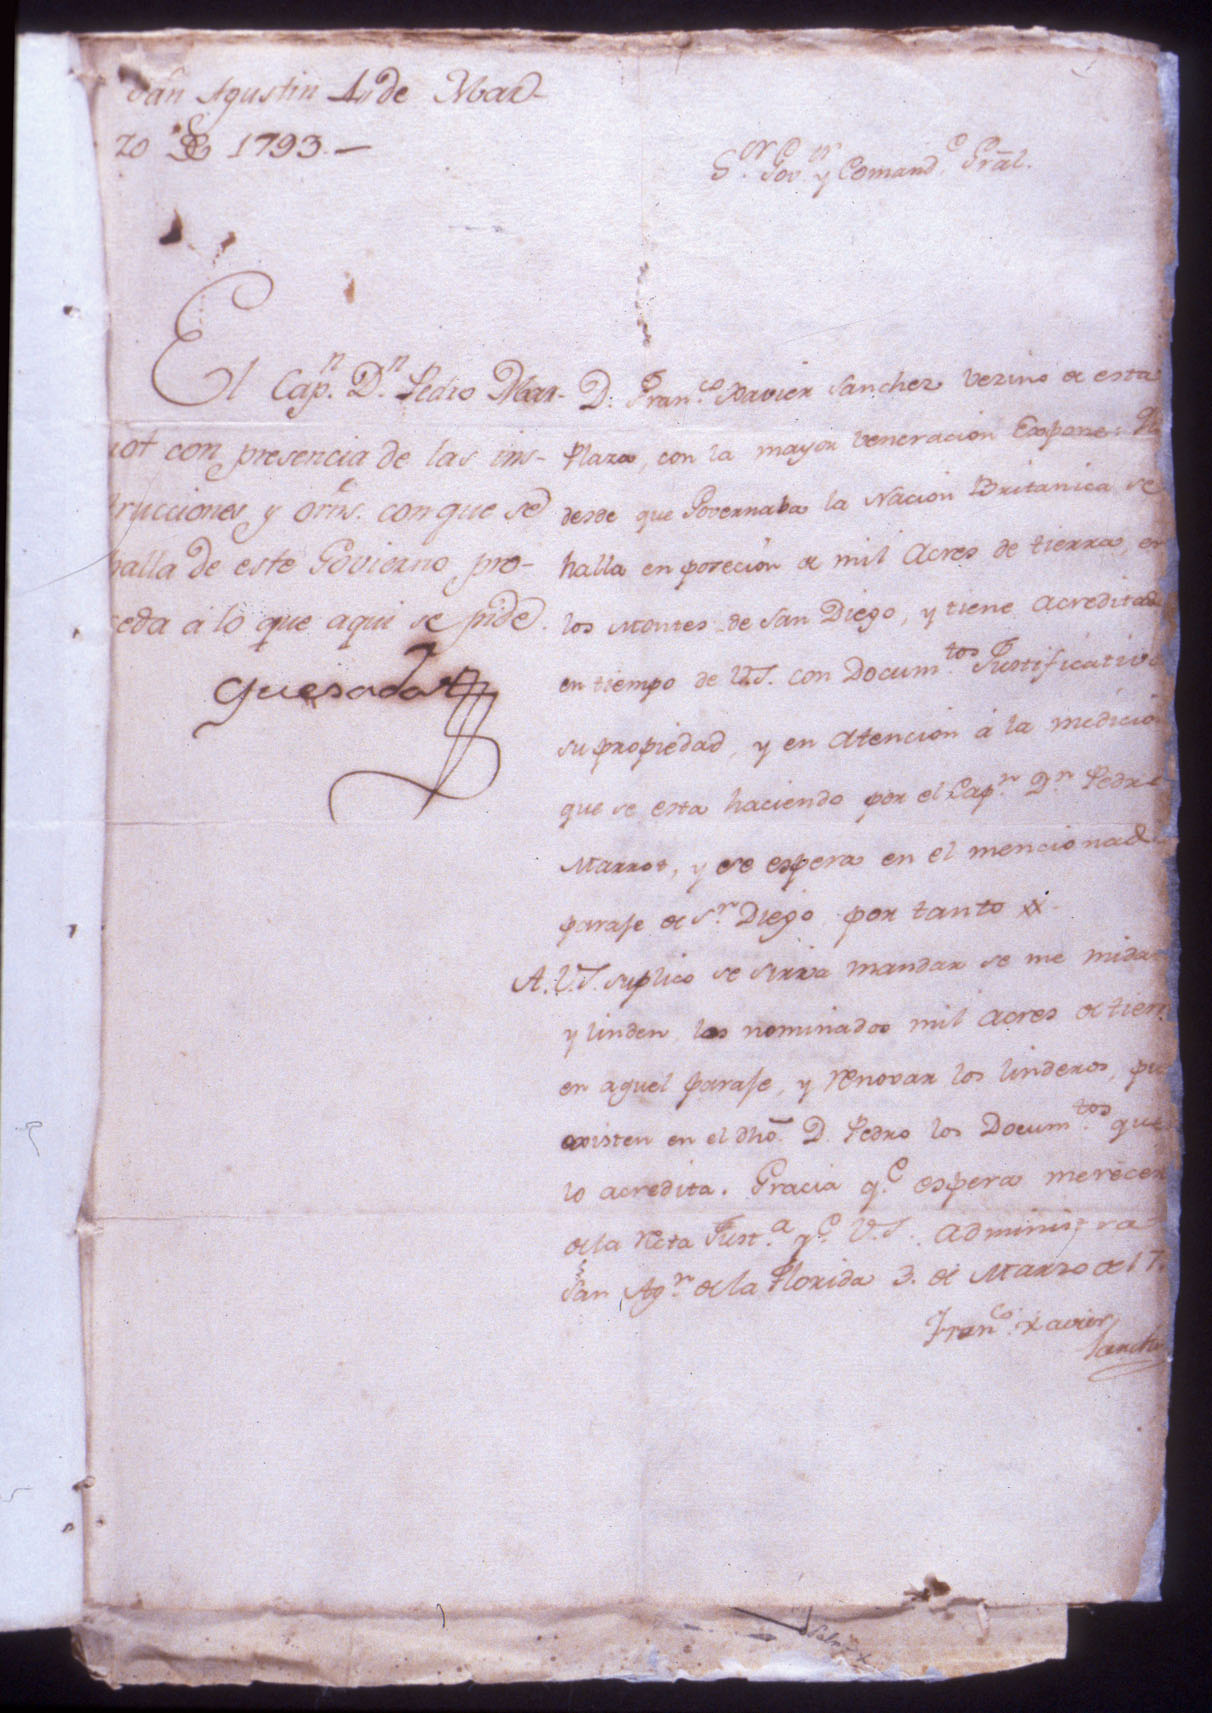 San Agustin 4, de Mar-
zo de 1793.—
El Cap.n D.n Pedro Mar-
rot con presencia de las ins-
trucciones y orns. con que se
halla de este Govierno pro-
ceda á lo que aqui se pide.
Quesada
S.or Gov.or y Comand.e Gral.
D. Fran.co Xavier Sanchez vezino de esta
Plaza, con la mayor veneracion Expone: 
desde que Governaba la Nacion Britanica se
halla en poseción de mil Acres de tierra, en
los Montes de San Diego, y tiene Acreditad
en tiempo de V.S. con Docum.tos Justificativo
su propiedad, y en Atencion á la medicio
que se esta haciendo por el Cap.n D.n Pedro
Marrot, y se espera en el mencionad
paraje de S.n Diego por tanto
A. V.S. suplico se sirva mandar se me midan
y linden los nominados mil Acres de tierr
en aquel paraje, y renovar los linderos, pue
existen en el dho. D. Pedro los Docum.tos que
lo acredita. Gracia q.e espera merecer
de la Recta Just.a q.e V.S. Administra
San Ag.n de la Florida 3. de Marzo de 17
Fran.co Xavier
Sanchez